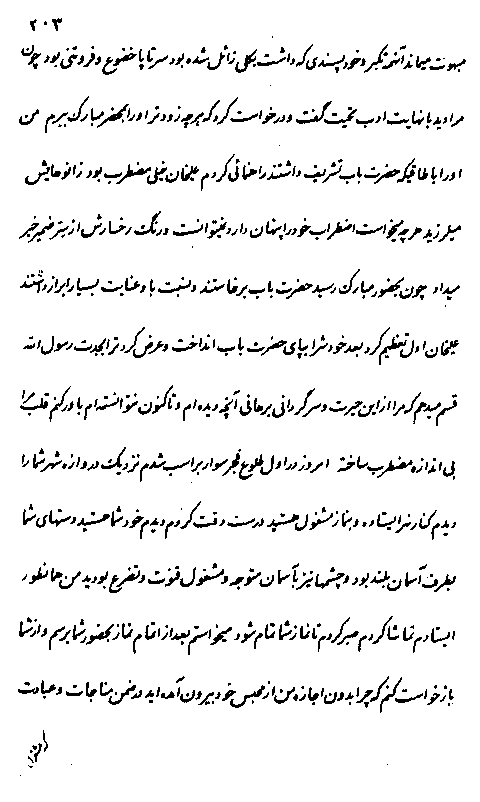 ۲۰۳
مبهوت میماند آنهمه تکبر و خودپسندی که داشت بکلی زائل شده بود سر تا پا خضوع و فروتنی بود چون
مرا دید با نهایت ادب تحیت گفت و درخواست کرد که هر چه زودتر او را بمحضر مبارک ببرم من
او را باطاقیکه حضرت باب تشریف داشتند راهنمائی کردم علیخان خیلی مضطرب بود زانوهایش
میلرزید هر چه میخواست اضطراب خود را پنهان دارد نمیتوانست و رنگ رخسارش از سرّ ضمیر خبر
میداد چون بحضور مبارک رسید حضرت باب برخاستند و نسبت باو عنایت بسیار ابراز داشتند
علیخان اول تعظیم کرد بعد خود را بپای حضرت باب انداخت و عرض کرد ترا بجدت رسول الله
قسم میدهم که مرا از این حیرت و سرگردانی برهانی آنچه دیده ام و تاکنون نتوانسته ام باور کنم قلب مرا
بی اندازه مضطرب ساخته امروز در اول طلوع فجر سوار بر اسب شدم نزدیک دروازه شهر شما را
دیدم کنار نهر ایستاده و بنماز مشغول هستید درست دقت کردم دیدم خود شما هستید دستهای شما
بطرف آسمان بلند بود و چشمها نیز بآسمان متوجه و مشغول قنوت و تضرع بودید من همانطور
ایستادم تماشا کردم صبر کردم تا نماز شما تمام شود میخواستم بعد از اتمام نماز بحضور شما برسم و از شما
بازخواست کنم که چرا بدون اجازه من از محبس خود بیرون آمده اید در ضمن مناجات و عبادت